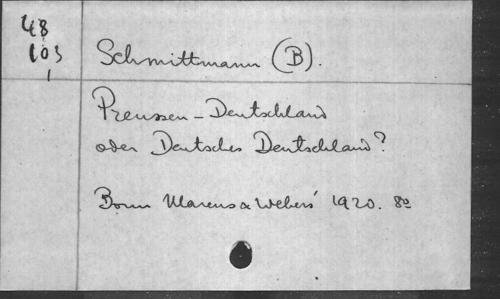 48
103
Schmittmann (B).
Preussen - Deutschland
oder Deutsches Deutschland?
Bonn Marcus & Webers' 1920. 8º